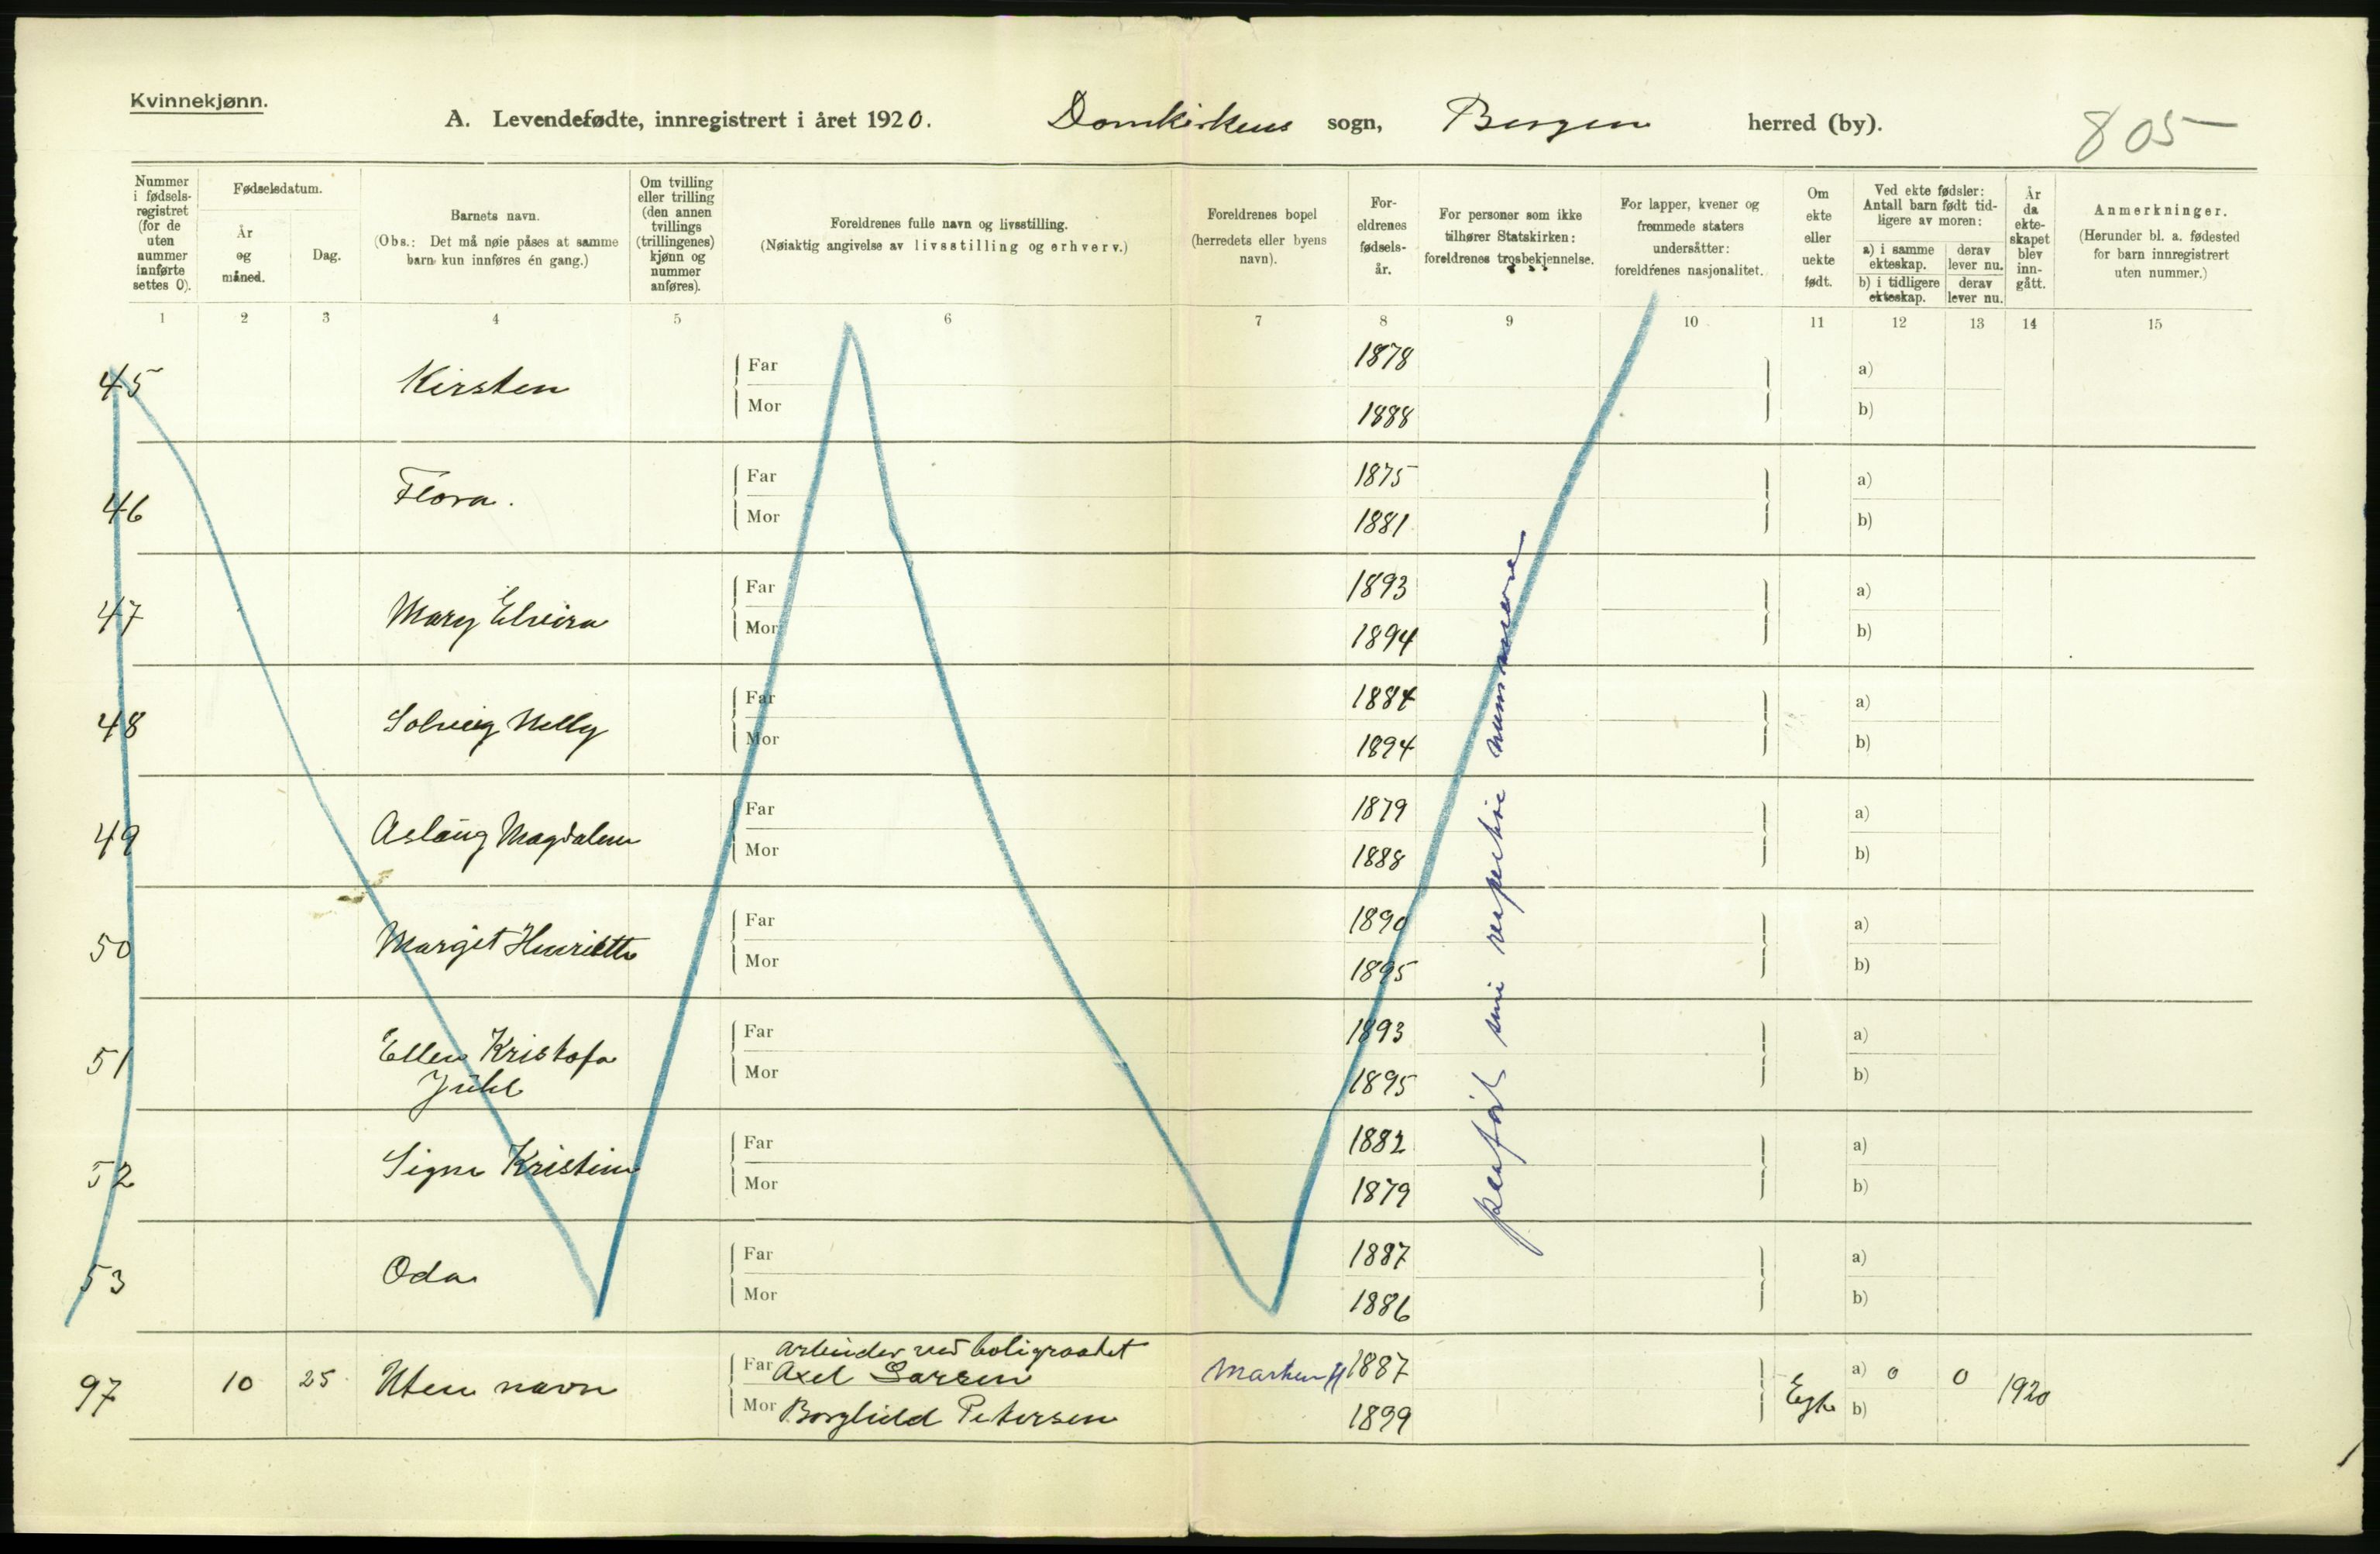 Kvinnekjønn.
A. Levendefødte, innregistrert i året 1920. Domkirkens sogn, Bergen herred (by). 805
Nummer i fødsels-registret (for de uten nummer innførte settes 0).
Fødselsdatum.
År og måned.
Dag.
Barnets navn.
(Obs.: Det må nøie påses at samme barn kun innføres én gang.)
Om tvilling eller trilling (den annen tvillings (trillingenes) kjønn og nummer anføres).
Foreldrenes fulle navn og livsstilling.
(Nøiaktig angivelse av livsstilling og erhverv.)
Foreldrenes bopel (herredets eller byens navn).
For-eldrenes fødsels-år.
For personer som ikke tilhører Statskirken: foreldrenes trosbekjennelse.
For lapper, kvener og fremmede staters undersåtter: foreldrenes nasjonalitet.
Om ekte eller uekte født.
Ved ekte fødsler: Antall barn født tid-ligere av moren:
a) i samme ekteskap.
derav lever nu.
b) i tidligere ekteskap.
derav lever nu.
År da ekte-skapet blev inn-gått.
Anmerkninger.
(Herunder bl. a. fødested for barn innregistrert uten nummer.)
1 2 3 4 5 6 7 8 9 10 11 12 13 14 15
45 Kirsten Far 1878 a)
Mor 1888 b)
46 Flora. Far 1875 a)
Mor 1881 b)
47 Mary Elvira Far 1893 a)
Mor 1894 b)
48 Solveig Nelly Far 1884 a)
Mor 1894 b)
49 Aslaug Magdalene Far 1879 a)
Mor 1888 b)
50 Margit Henriette Far 1890 a)
Mor 1895 b)
51 Ellen Kristofa Far 1893 a)
Juhl Mor 1895 b)
52 Signe Kristine Far 1882 a)
Mor 1879 b)
53 Oda Far 1887 a)
Mor 1886 b)
paaført sine respektive nummere
arbeider ved boligraadet
97 10 25 Uten navn Far Axel Larsen Marken 1887 Egte a) 0 0 1920
Mor Borghild Petersen 1899 b)